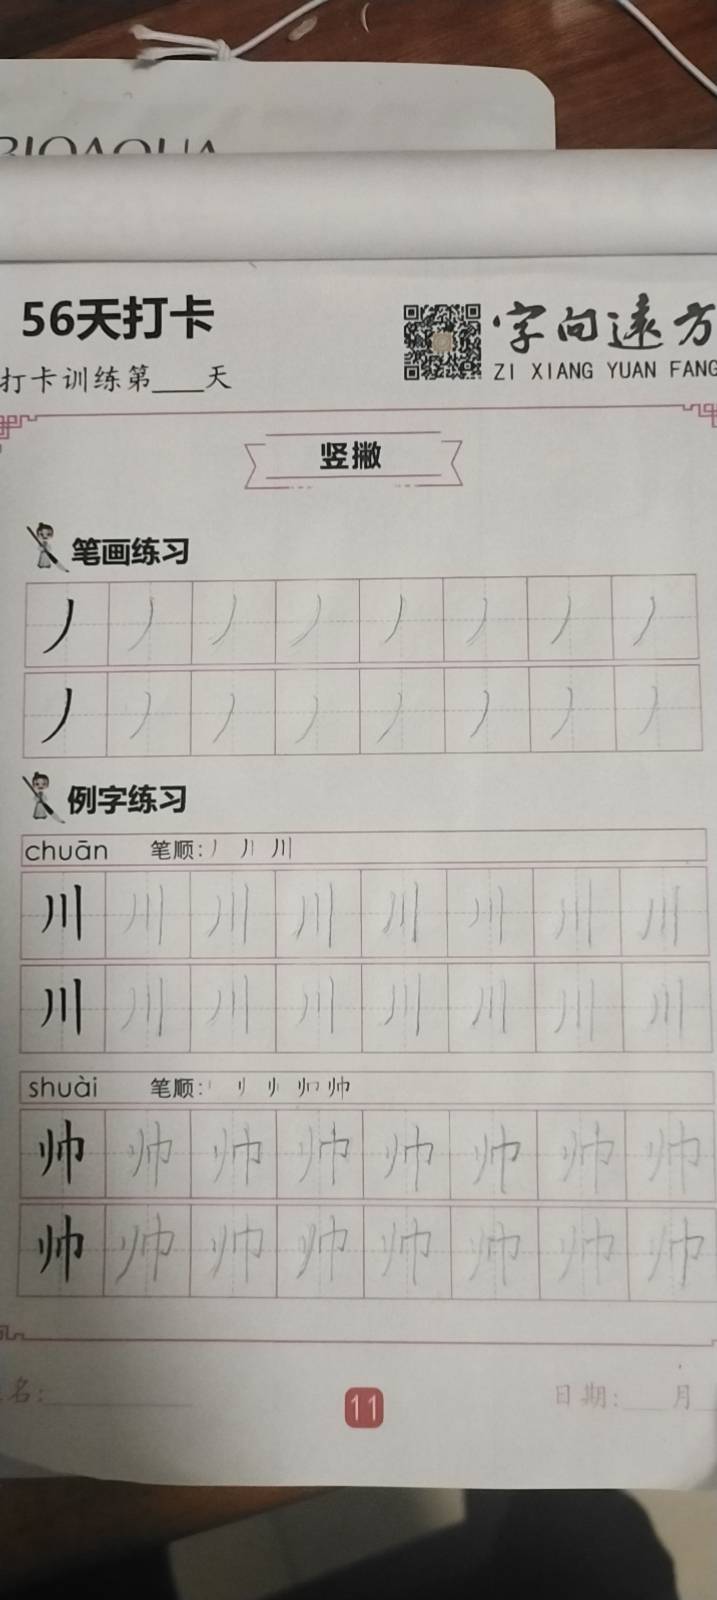 BIOAQUA
56天打卡
字向遠方
ZI XIANG YUAN FANG
打卡训练第____天
竖撇
笔画练习
丿 丿 丿 丿 丿 丿 丿 丿
丿 丿 丿 丿 丿 丿 丿 丿
例字练习
chuān 笔顺: 丿 丿丨 川
川 川 川 川 川 川 川 川
川 川 川 川 川 川 川 川
shuài 笔顺: 帅
帅 帅 帅 帅 帅 帅 帅 帅
帅 帅 帅 帅 帅 帅 帅 帅
名:
11
日期:____月